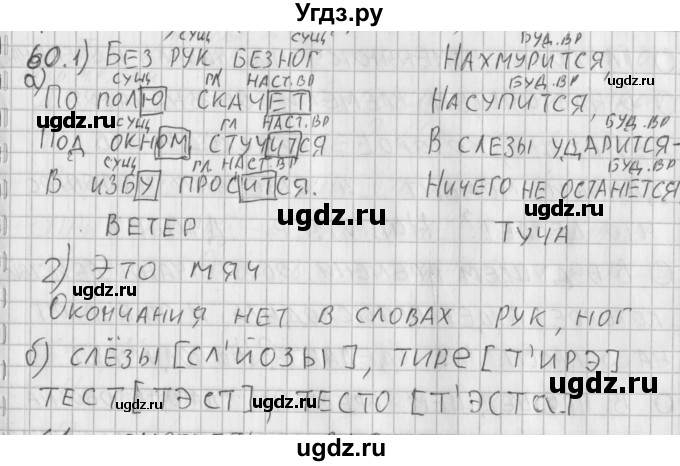 Угдз.ру
сущ сущ буд.вр
60.1) Без рук, без ног Нахмурится,
а) сущ гл наст.вр буд.вр
По полю скачет Насупится,
сущ гл наст.вр буд.вр
Под окном стучится В слезы ударится-
сущ гл наст.вр буд.вр
В избу просится. Ничего не останется
ugdz.ru
ugdz.ru
ugdz.ru
ugdz.ru
Ветер Туча
ugdz.ru
2) Это мяч
ugdz.ru
Окончания нет в словах рук, ног
б) слёзы [сл'йозы], тире [т'ирэ]
ugdz.ru
тест [тэст], тесто [т'эста]
ugdz.ru ugdz.ru
ugdz.ru